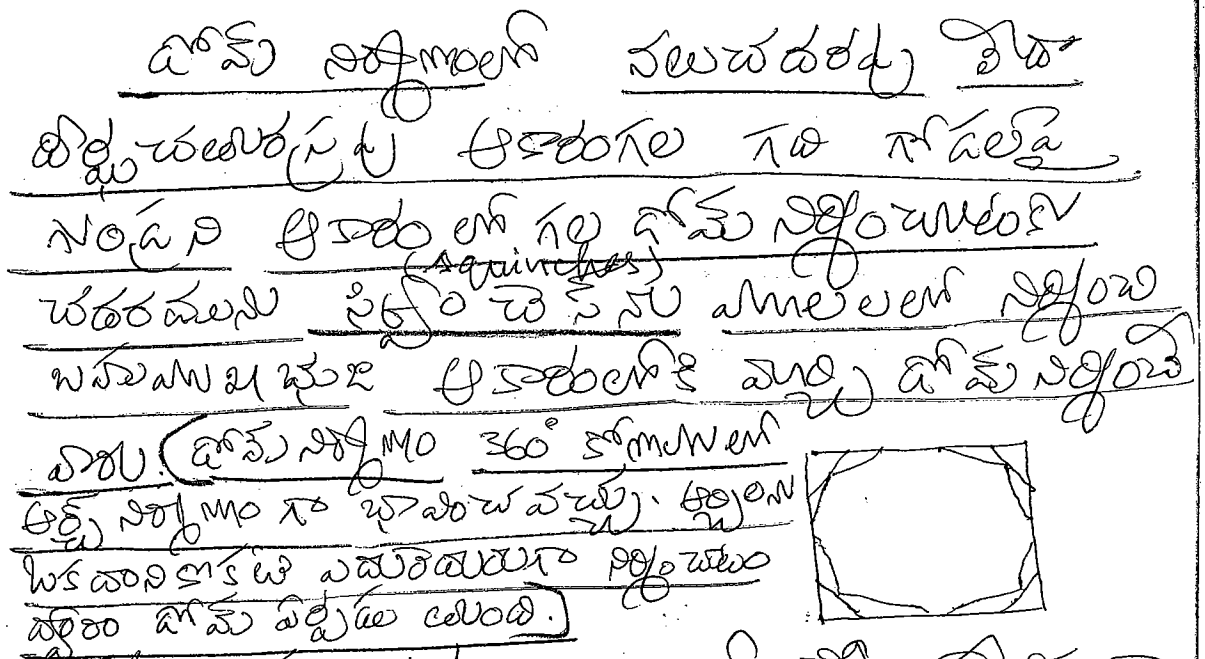 డోమ్ నిర్మాణంలో నలుచదరపు లేదా
దీర్ఘచతురస్రపు ఆకారంగల గది గోడలపై
గుండ్రని ఆకారంలో గల డోమ్ నిర్మించుటకు
చదరమును స్క్వించెస్ ను (squinches) మూలలలో నిర్మించి
బహుముఖ భుజ ఆకారంలోకి మార్చి డోమ్ నిర్మించే
వారు. (డోమ్ నిర్మాణం 360° కోణంలో
ఆర్చ్ నిర్మాణం గా భావించవచ్చు. ఆర్చ్‌లను
ఒకదానికొకటి ఎదురెదురుగా నిర్మించుటం
ద్వారా డోమ్ ఏర్పడుతుంది.)